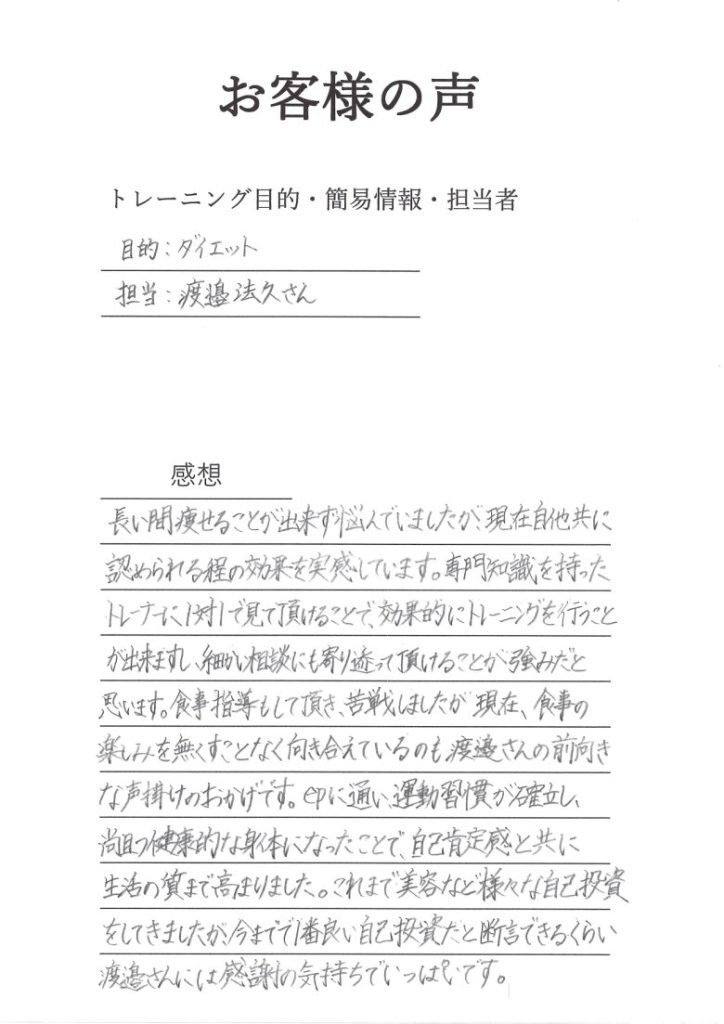 お客様の声
トレーニング目的・簡易情報・担当者
目的：ダイエット
担当：渡邉法久さん
感想
長い間痩せることが出来ず悩んでいましたが、現在自他共に
認められる程の効果を実感しています。専門知識を持った
トレーナーに1対1で見て頂けることで、効果的にトレーニングを行うこと
が出来ますし、細かい相談にも寄り添って頂けることが強みだと
思います。食事指導もして頂き、苦戦しましたが現在、食事の
楽しみを無くすことなく向き合えているのも渡邉さんの前向き
な声掛けのおかげです。epに通い、運動習慣が確立し、
尚且つ健康的な身体になったことで、自己肯定感と共に
生活の質まで高まりました。これまで美容など様々な自己投資
をしてきましたが、今までで1番良い自己投資だと断言できるくらい
渡邉さんには感謝の気持ちでいっぱいです。